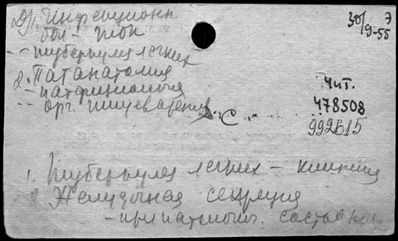 1. Инфекционн
бол-
30/7
19-55
туберкулез легких
2. Патанатомия
- патфизиология
-- орг. пищеварения
Чит.
478508
992615
С
1. Туберкулез легких - клиника
2 Желудочная секреция
- при патологи. состоян